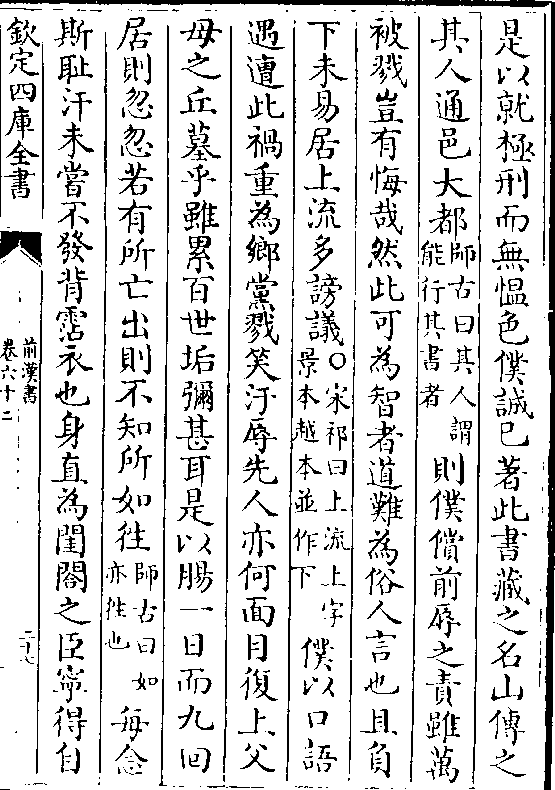 是以就極刑而無愠色僕誠已著此書藏之名山傳之
其人通邑大都師古曰其人謂能行其書者則僕償前辱之責雖萬
被戮豈有悔哉然此可為智者道難為俗人言也且負
下未易居上流多謗議○宋祁曰上流上字景本越本並作下僕以口語
遇遭此禍重為鄉黨戮笑汙辱先人亦何面目復上父
母之丘墓乎雖累百世垢彌甚耳是以腸一日而九回
居則忽忽若有所亡出則不知所如往師古曰如亦往也每念
斯恥汗未嘗不發背霑衣也身直為閨閤之臣寧得自
欽定四庫全書
前漢書
卷六十二
二十七